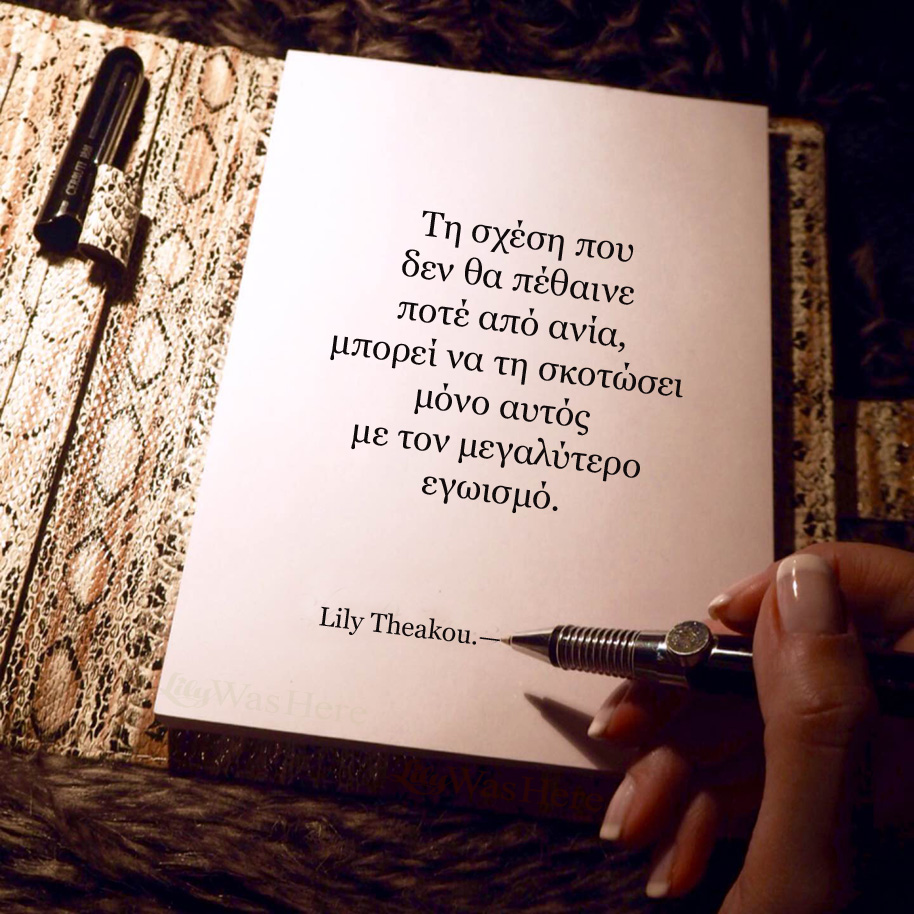 Τη σχέση που
δεν θα πέθαινε
ποτέ από ανία,
μπορεί να τη σκοτώσει
μόνο αυτός
με τον μεγαλύτερο
εγωισμό.
Lily Theakou.—
LilyWasHere
LilyWasHere
CERRUTI 1881